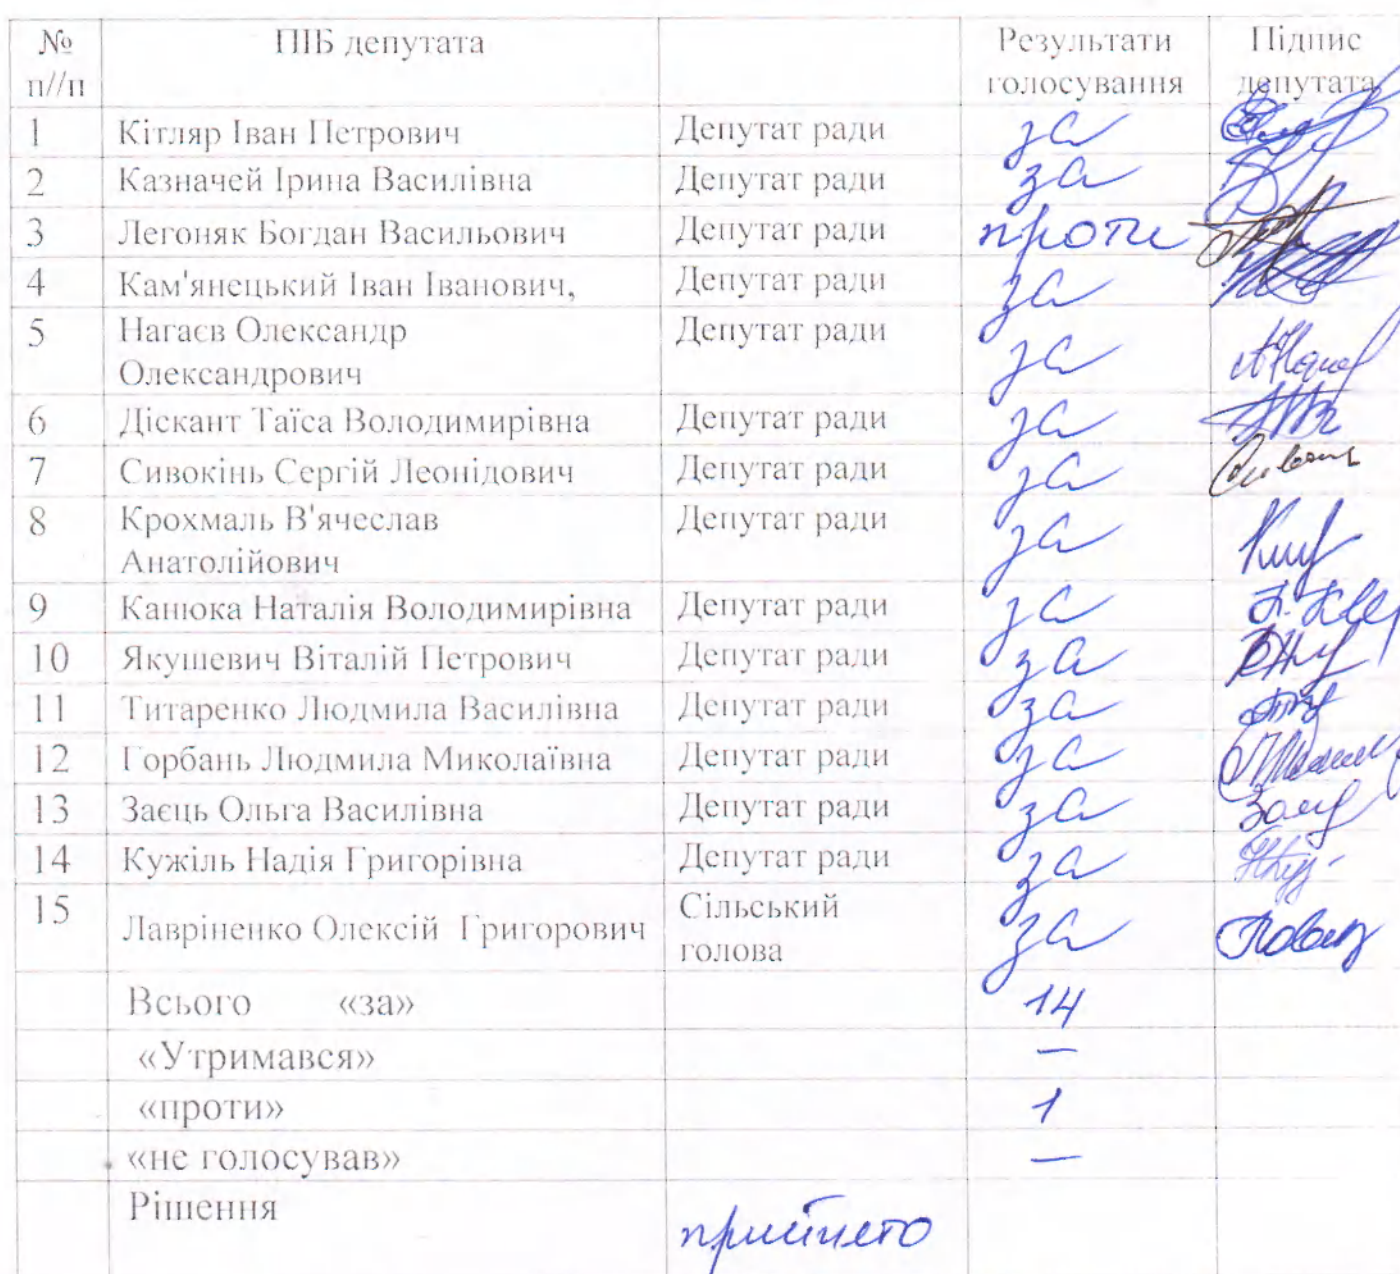 № ПІБ депутата Результати Підпис
п//п голосування депутата
1 Кітляр Іван Петрович Депутат ради за
2 Казначей Ірина Василівна Депутат ради за
3 Легоняк Богдан Васильович Депутат ради проти
4 Кам'янецький Іван Іванович, Депутат ради за
5 Нагаєв Олександр Депутат ради за
Олександрович
6 Діскант Таїса Володимирівна Депутат ради за
7 Сивокінь Сергій Леонідович Депутат ради за
8 Крохмаль В'ячеслав Депутат ради за
Анатолійович
9 Канюка Наталія Володимирівна Депутат ради за
10 Якушевич Віталій Петрович Депутат ради за
11 Титаренко Людмила Василівна Депутат ради за
12 Горбань Людмила Миколаївна Депутат ради за
13 Заєць Ольга Василівна Депутат ради за
14 Кужіль Надія Григорівна Депутат ради за
15 Лавріненко Олексій Григорович Сільський за
голова
Всього «за» 14
«Утримався» —
«проти» 1
«не голосував» —
Рішення прийнято